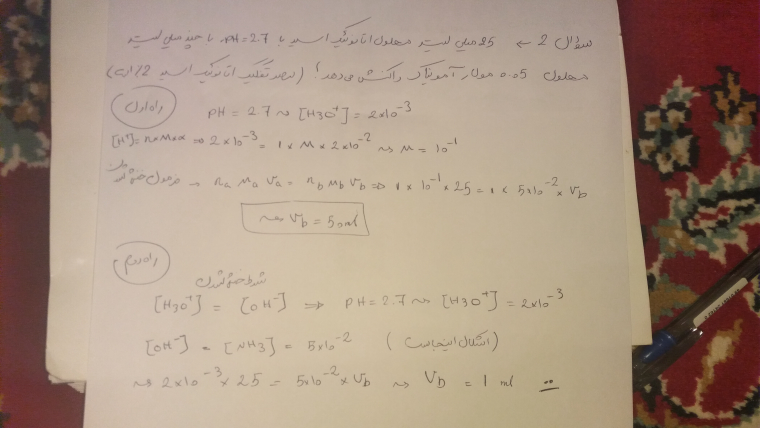 سؤال 2 ← 25 میلی لیتر محلول اتانوئیک اسید با PH=2.7 با چند میلی لیتر
محلول 0.05 مولار آمونیاک واکنش می‌دهد؟ (درصد تفکیک اتانوئیک اسید 2/ است)
راه اول
PH = 2.7 ⇝ [H3O+] = 2×10^-3
[H+] = n×M×α ⇒ 2×10^-3 = 1 × M × 2×10^-2 ⇝ M = 10^-1
فرمول خنثی شدن → na Ma Va = nb Mb Vb ⇒ 1 × 10^-1 × 25 = 1 × 5×10^-2 × Vb
⇝ Vb = 50 ml
راه دوم
شرط خنثی شدن
[H3O+] = [OH-] ⇒ PH = 2.7 ⇝ [H3O+] = 2×10^-3
[OH-] = [NH3] = 5×10^-2 (اشکال اینجاست)
⇝ 2×10^-3 × 25 = 5×10^-2 × Vb ⇝ Vb = 1 ml